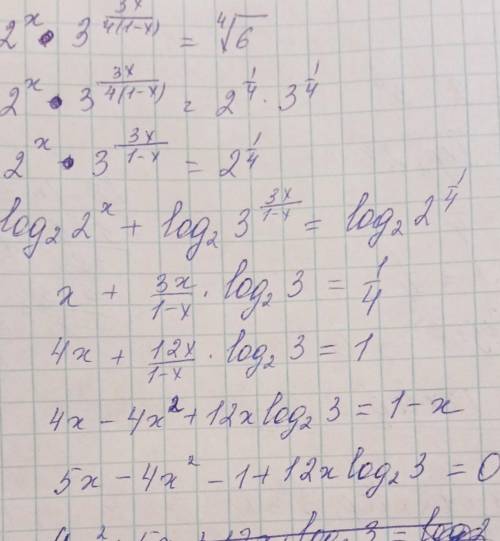 2^x · 3^(3x/4(1-x)) = ⁴√6
2^x · 3^(3x/4(1-x)) = 2^(1/4) · 3^(1/4)
2^x · 3^(3x/1-x) = 2^(1/4)
log₂ 2^x + log₂ 3^(3x/1-x) = log₂ 2^(1/4)
x + 3x/1-x · log₂ 3 = 1/4
4x + 12x/1-x · log₂ 3 = 1
4x - 4x² + 12x log₂ 3 = 1 - x
5x - 4x² - 1 + 12x log₂ 3 = 0